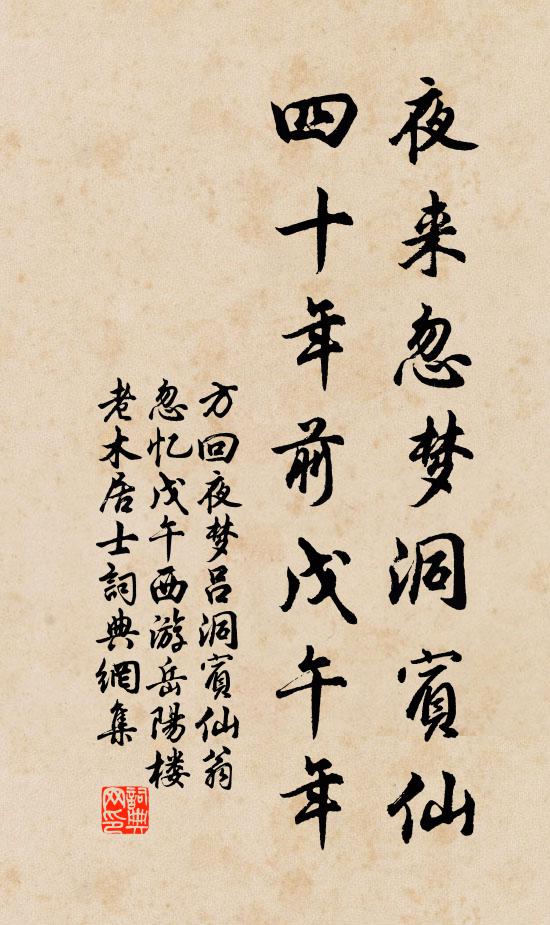 夜来忽梦洞賓仙
四十年前戊午年
方回夜梦吕洞賓仙翁
忽忆戊午西游岳陽楼
老木居士詞典網集
詞典
网印